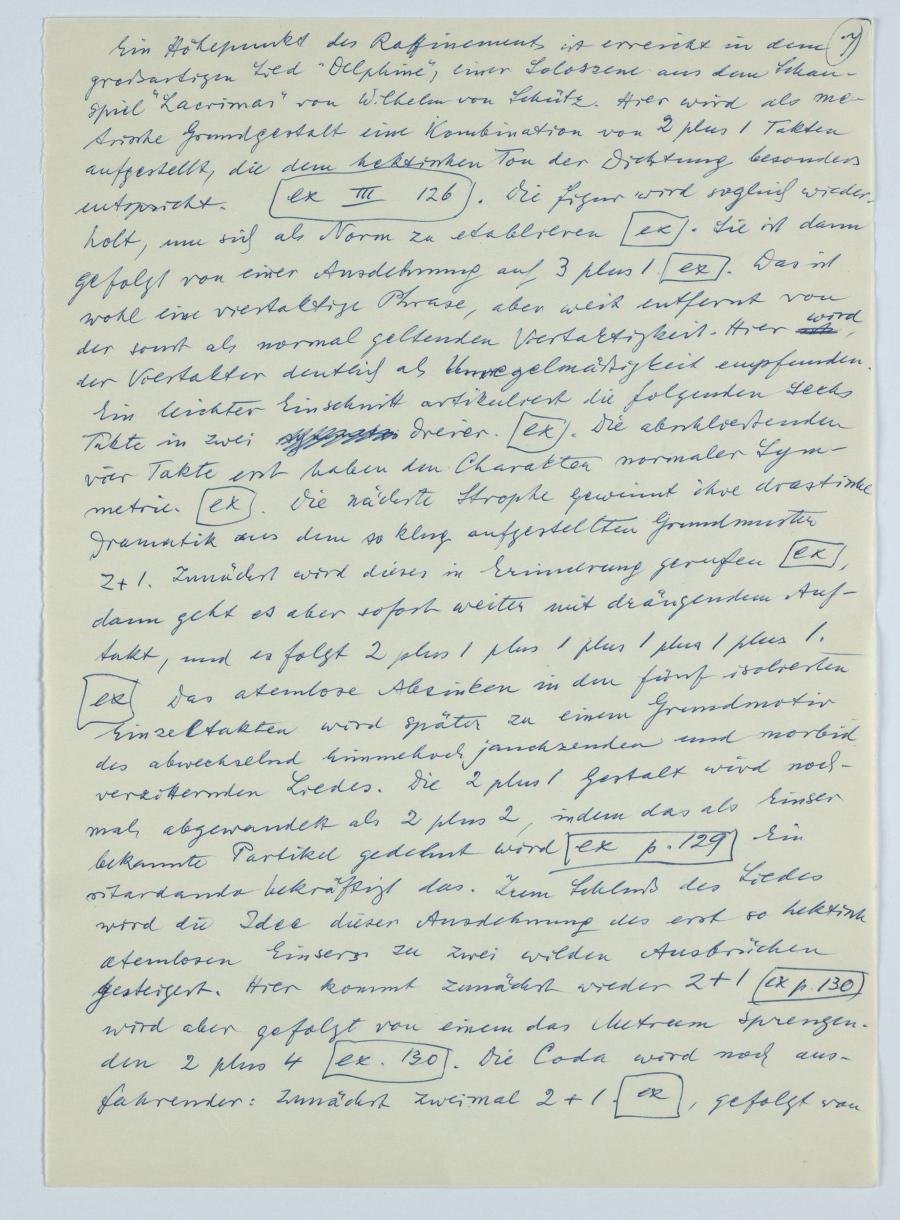 7)
Ein Höhepunkt des Raffinements ist erreicht in dem
großartigen Lied "Delphine", einer Soloszene aus dem Schau-
spiel "Lacrimas" von Wilhelm von Schütz. Hier wird als me-
trische Grundgestalt eine Kombination von 2 plus 1 Takten
aufgestellt, die dem hektischen Ton der Dichtung besonders
entspricht. ex III 126. Die Figur wird sogleich wieder-
holt, um sich als Norm zu etablieren ex. Sie ist dann
gefolgt von einer Ausdehnung auf 3 plus 1 ex. Das ist
wohl eine viertaktige Phrase, aber weit entfernt von
der sonst als normal geltenden Viertaktigkeit. Hier wird,
der Viertakter deutlich als Unregelmäßigkeit empfunden.
Ein leichter Einschnitt artikuliert die folgenden sechs
Takte in zwei Dreier. ex. Die abschließenden
vier Takte erst haben den Charakter normaler Sym-
metrie. ex. Die nächste Strophe gewinnt ihre drastische
Dramatik aus dem so klug aufgestellten Grundmuster
2+1. Zunächst wird dieses in Erinnerung gerufen ex,
dann geht es aber sofort weiter mit drängendem Auf-
takt, und es folgt 2 plus 1 plus 1 plus 1 plus 1 plus 1.
ex Das atemlose Absinken in den fünf isolierten
Einzeltakten wird später zu einem Grundmotiv
des abwechselnd himmelhoch jauchzenden und morbid
verzitternden Liedes. Die 2 plus 1 Gestalt wird noch-
mals abgewandelt als 2 plus 2, indem das als Einser
bekannte Partikel gedehnt wird ex p. 129 Ein
ritardando bekräftigt das. Zum Schluß des Liedes
wird die Idee dieser Ausdehnung des erst so hektisch
atemlosen Einsers zu zwei wilden Ausbrüchen
gesteigert. Hier kommt zunächst wieder 2+1 ex p. 130
wird aber gefolgt von einem das Metrum sprengen-
den 2 plus 4 ex. 130. Die Coda wird noch aus-
fahrender: zunächst zweimal 2+1. ex, gefolgt von